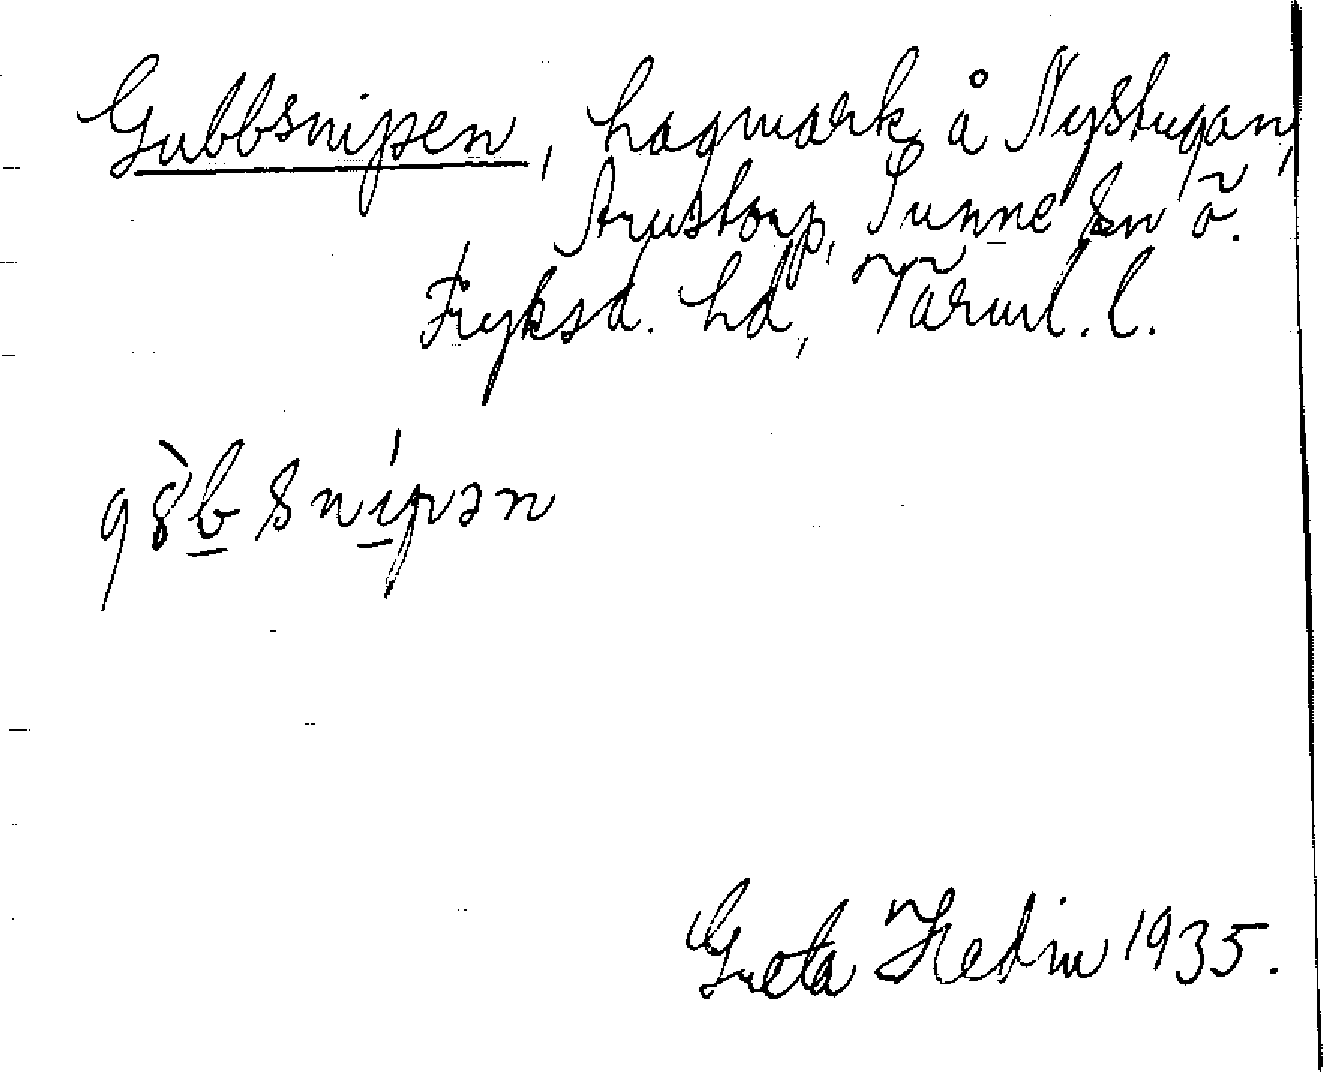 Gubbsnipen, hagmark å Nystugan,
Arustorp, Sunne sn ö.
Fryksd. hd, Värml. l.
g8̀b̲ sní̲pən
Greta Hedin 1935.